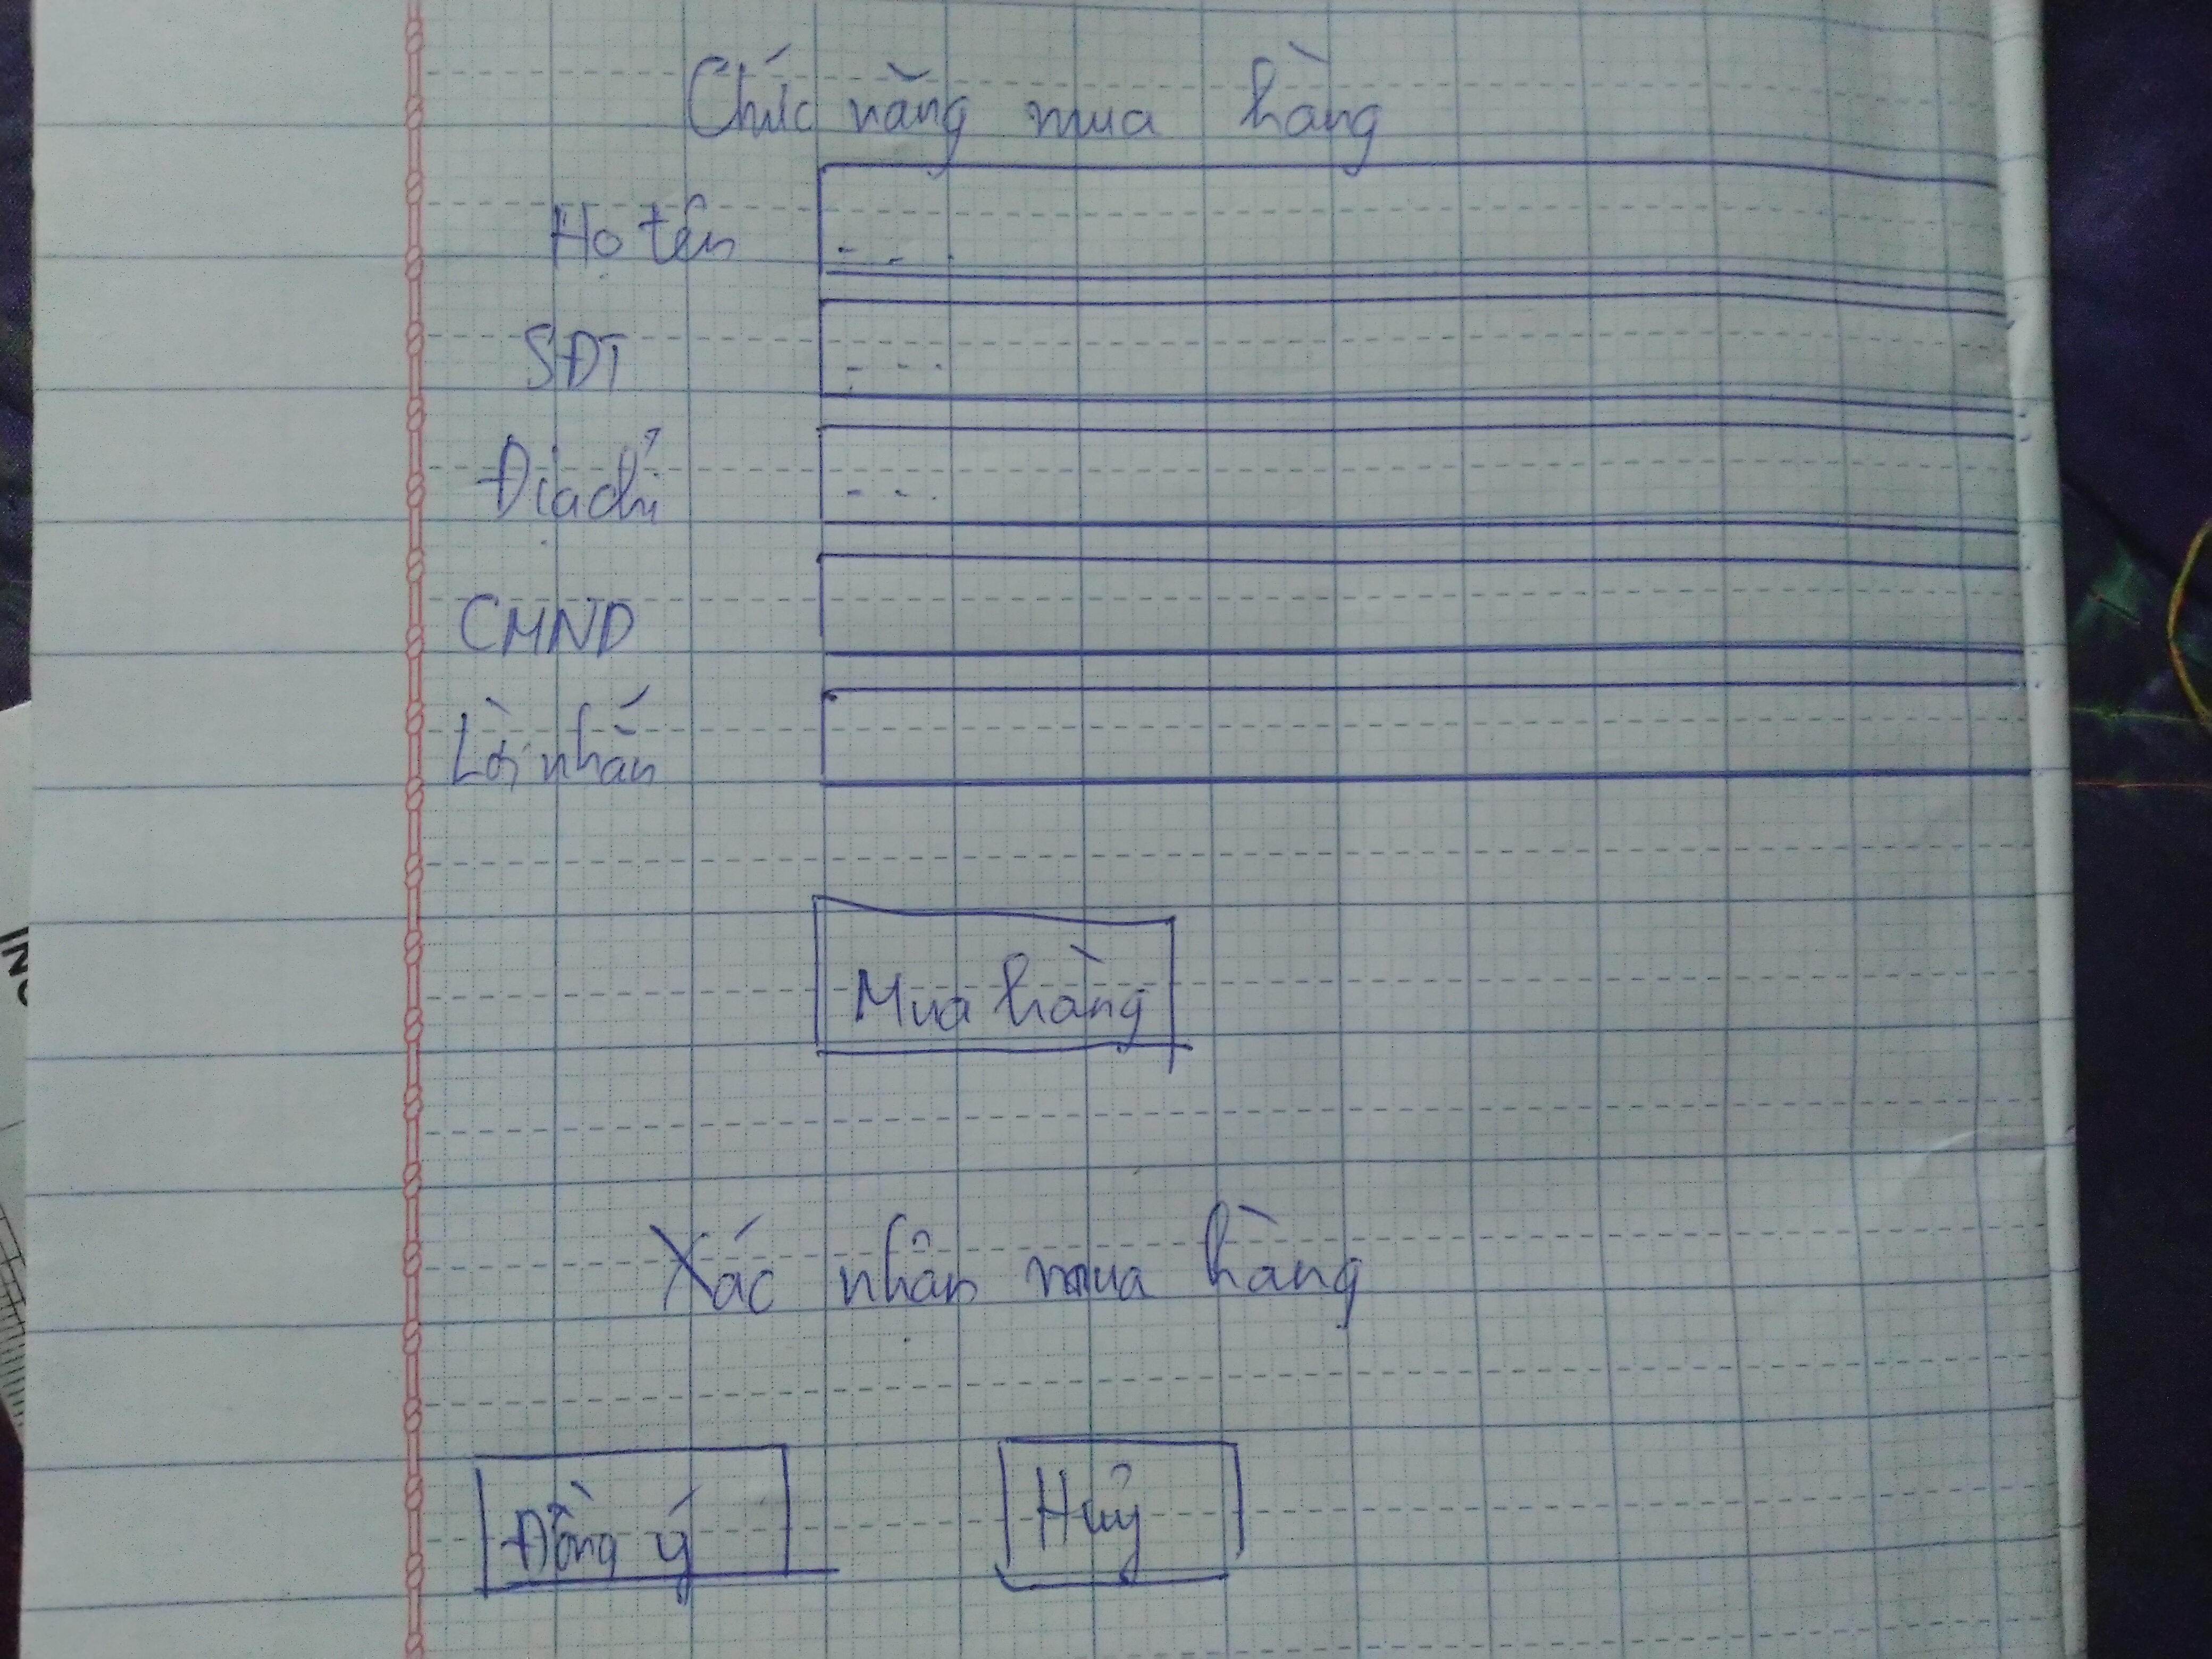 Chức năng mua hàng
Họ tên - - .
SĐT - - .
Địa chỉ - - .
CMND
Lời nhắn
Mua hàng
Xác nhận mua hàng
Đồng ý Huỷ